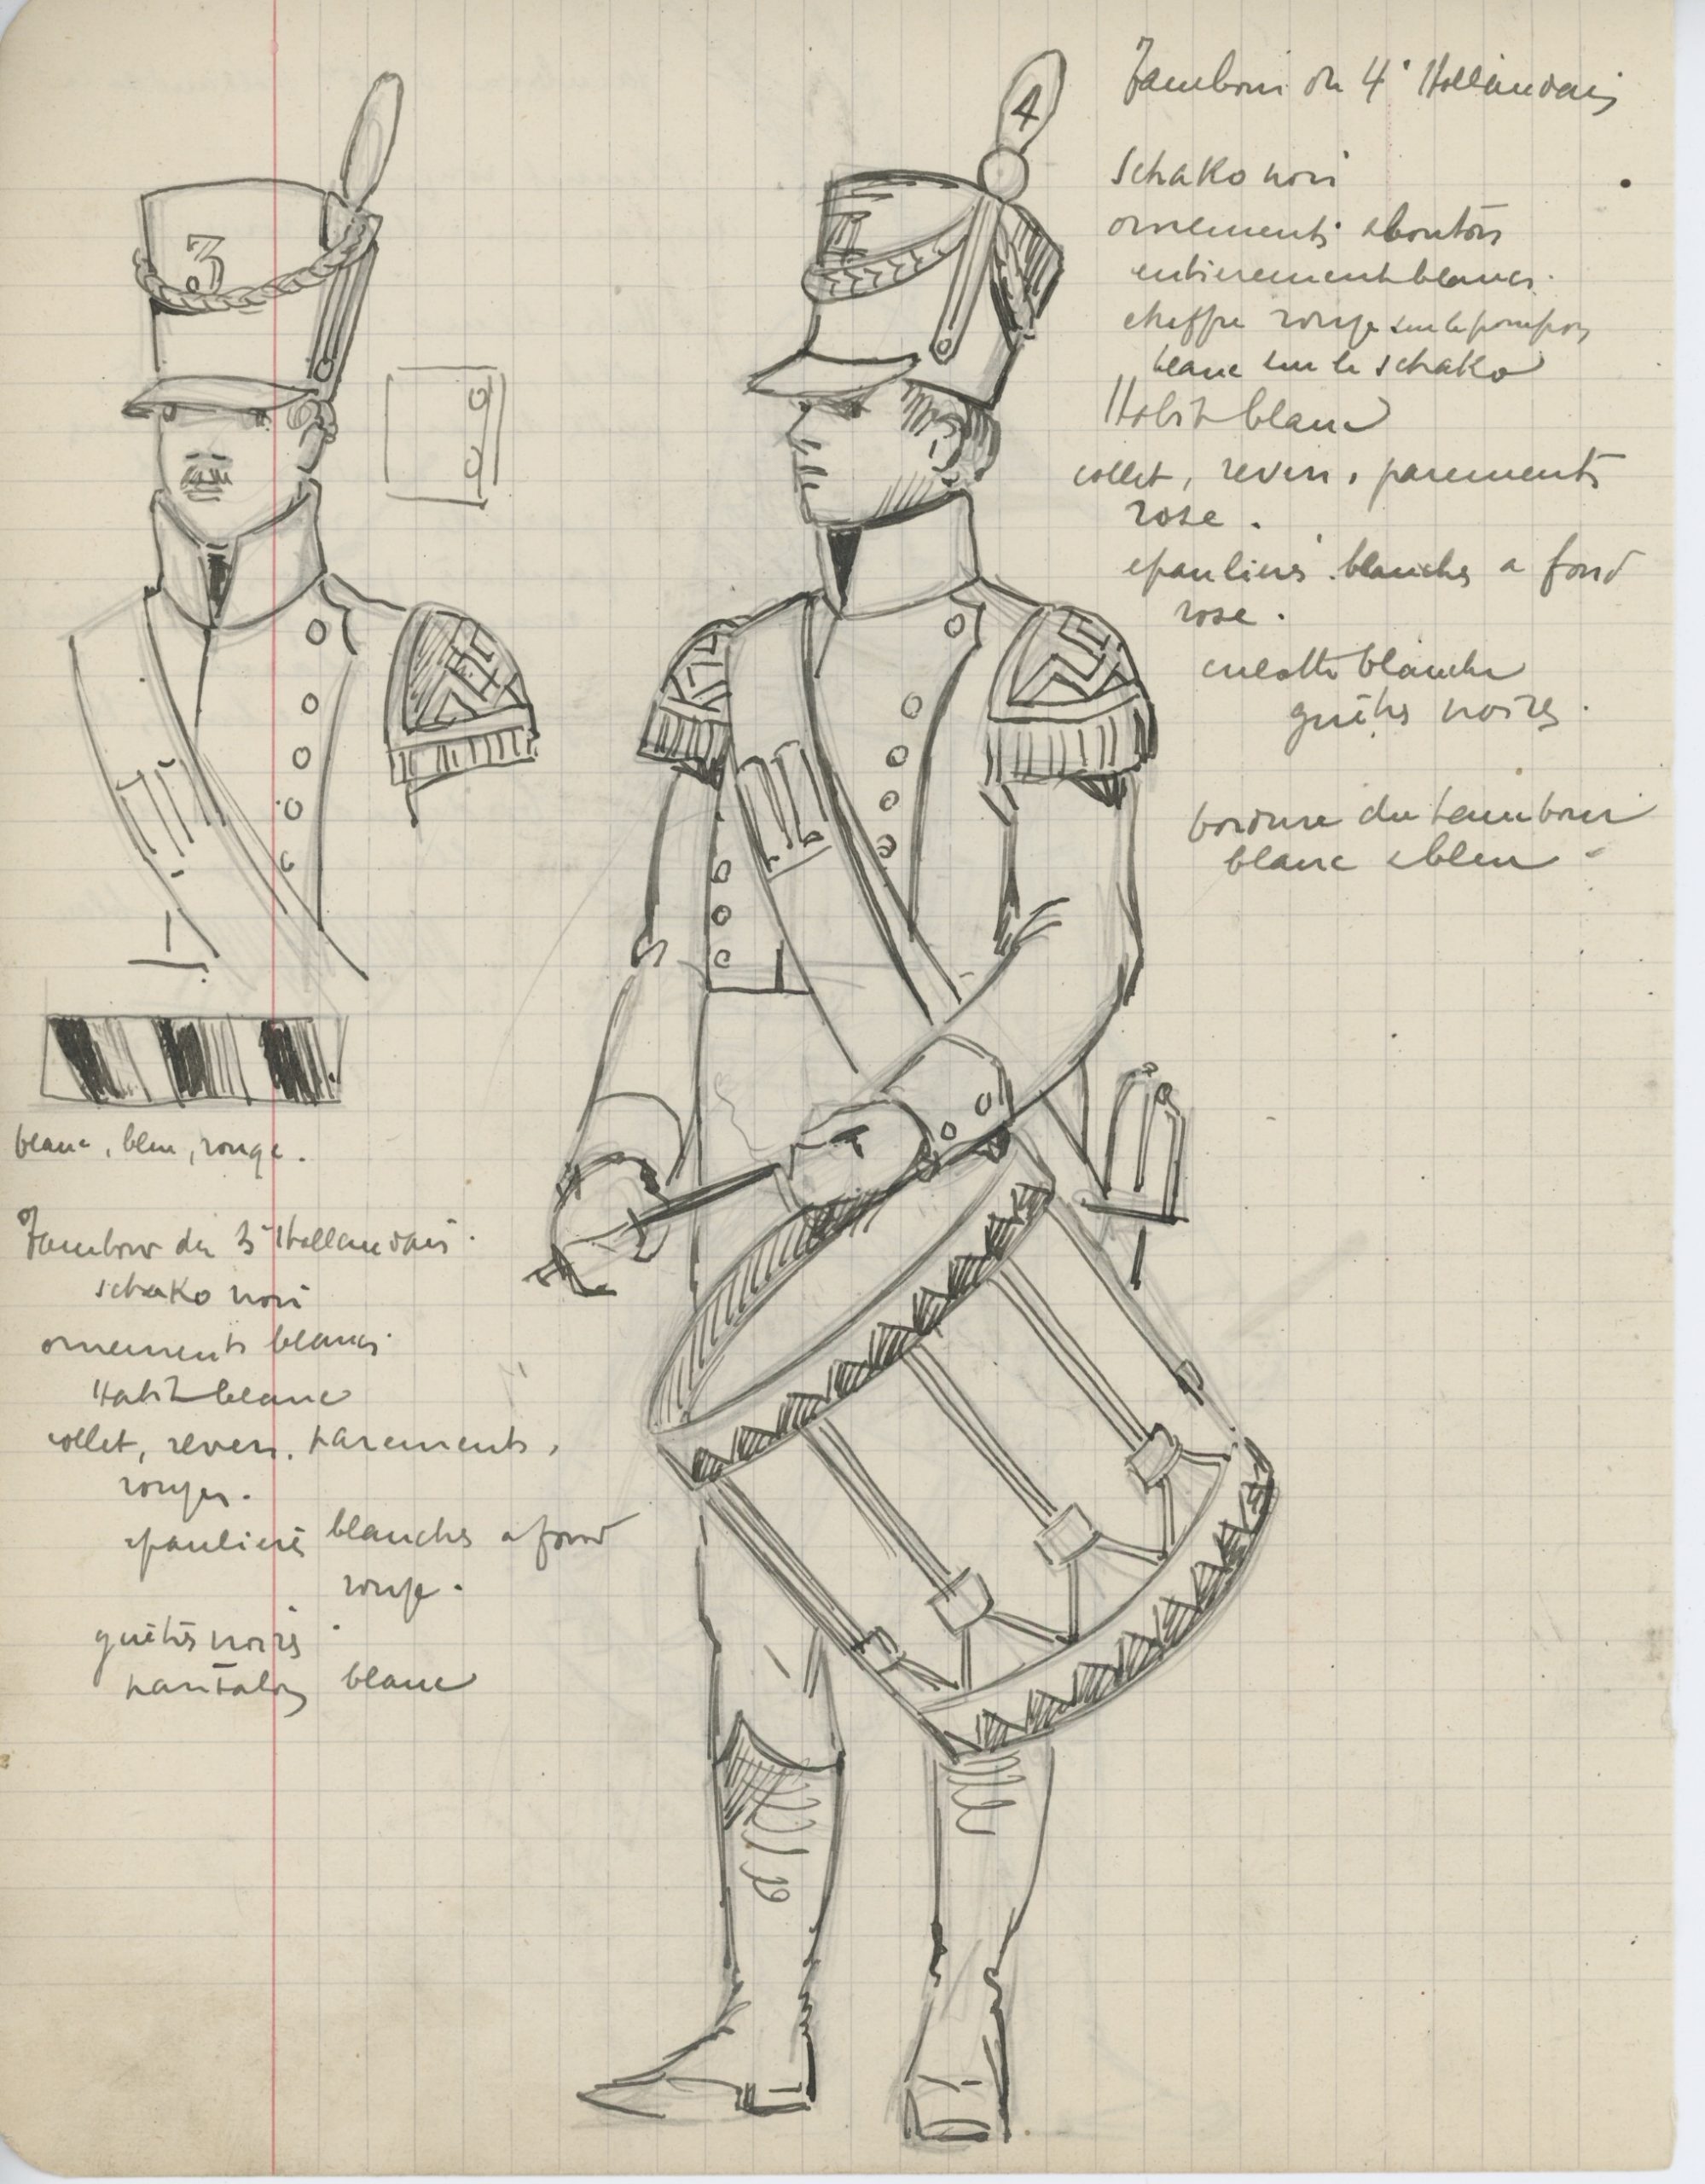 4
Tambour du 4e Hollandais
Schako noir
ornements et boutons
entierement blancs.
chiffre rouge sur le pompon
blanc sur le schako
Habit blanc
collet, revers, parements
rose.
epaulieres blanches a fond
rose.
culotte blanche
guêtres noires.
bordure du tambour
blanc et bleu
3
4
blanc, bleu, rouge.
Tambour du 3e Hollandais.
schako noir
ornements blancs
Habit blanc
collet, revers, parements,
rouges.
epaulieres blanches a fond
rouge.
guêtres noires
pantalon blanc